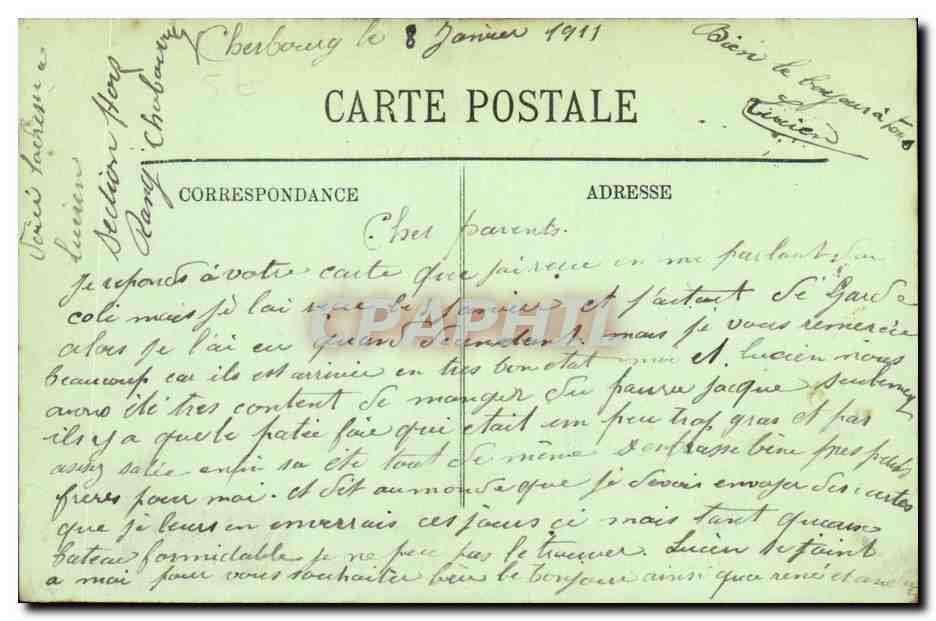 Cherbourg le 8 Janvier 1911
Bien le bonjour à tous
Lucien
Voici l'adresse a
Lucien
Section Hors
Rang Cherbourg
CARTE POSTALE
CORRESPONDANCE
ADRESSE
Cher parents.
Je reponds à votre carte que j'ai reçue en me parlant d'un
coli mais je lai reçu le Janvier et j'aitait de Garde
alors je l'ai eu quand desendant mais je vous remercie
beaucoup car ils est arrivée en tres bon etat moi et Lucien nous
avons été tres content de manger du pauvre jacque Seulement
ils y a que le patée foie que etait un peu trop gras et pas
assez salée enfin sa été tout de même embrasse bien mes petits
frères pour moi. et dit au monde que je devais envoyer des cartes
que je leurs en enverrais ces jours ci mais tant qu'aux
bateau formidable je ne peu pas le trouver. Lucien se joint
a moi pour vous souhaiter bien le bonjour ainsi qua rené et
CPAPHIL